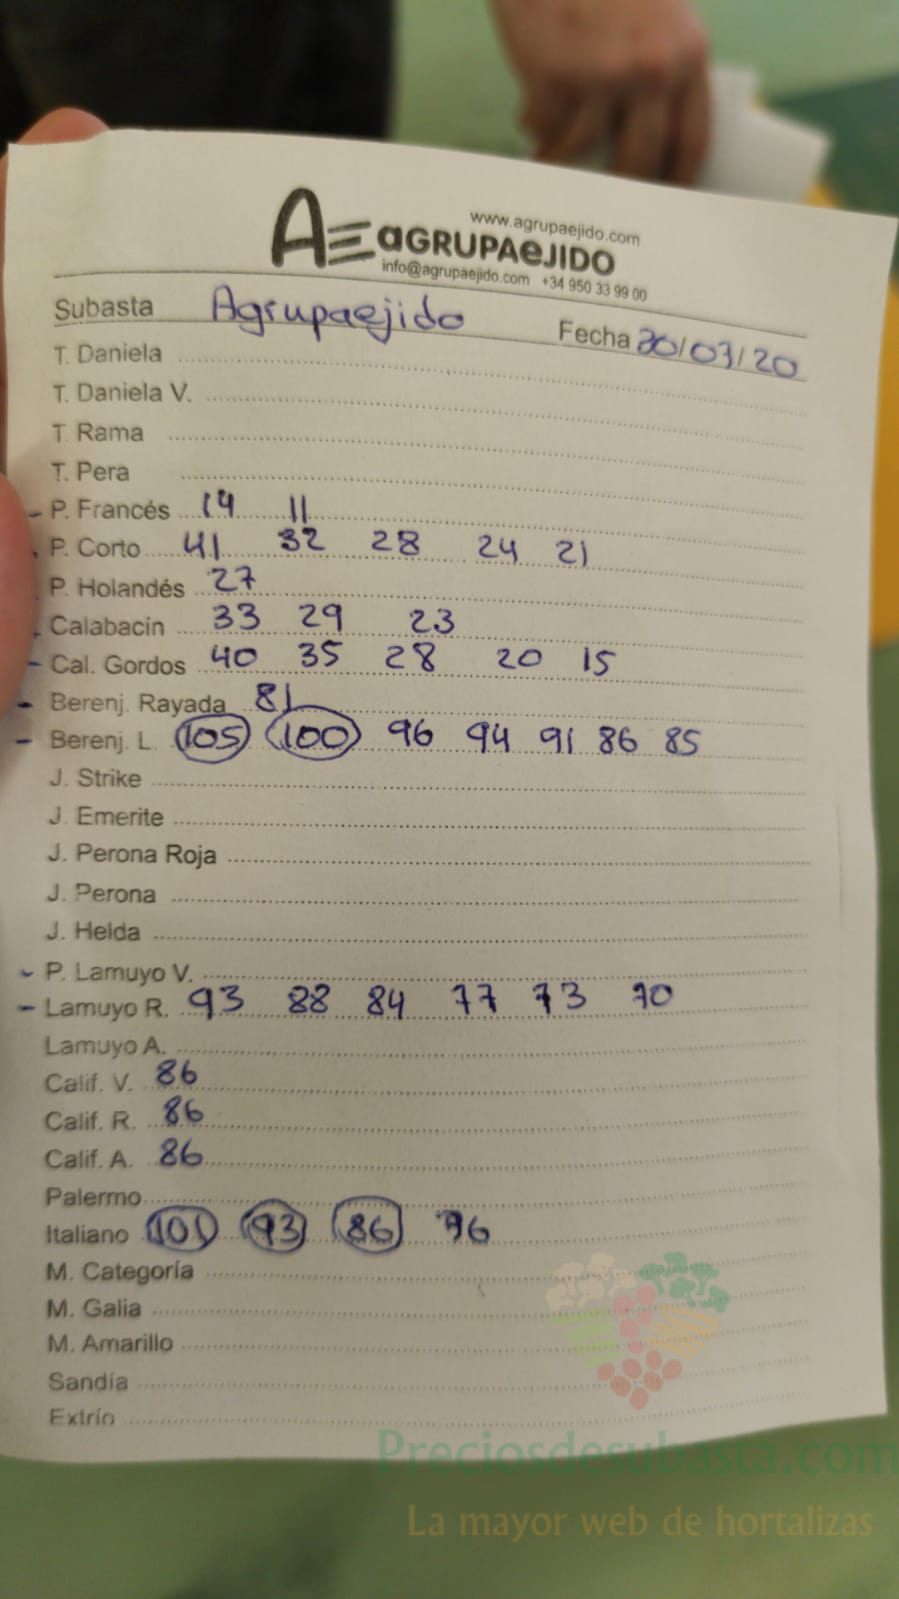 www.agrupaejido.com
AE aGRUPAeJIDO
info@agrupaejido.com +34 950 33 99 00
Subasta Agrupaejido Fecha 20/03/20
T. Daniela
T. Daniela V.
T. Rama
T. Pera
- P. Francés 14 11
P. Corto 41 32 28 24 21
P. Holandés 27
Calabacín 33 29 23
- Cal. Gordos 40 35 28 20 15
- Berenj. Rayada 81
- Berenj. L. 105 100 96 94 91 86 85
J. Strike
J. Emerite
J. Perona Roja
J. Perona
J. Helda
- P. Lamuyo V.
- Lamuyo R. 93 88 84 77 73 70
Lamuyo A.
Calif. V. 86
Calif. R. 86
Calif. A. 86
Palermo
Italiano 101 93 86 76
M. Categoría
M. Galia
M. Amarillo
Sandía
Extrío
Preciosdesubasta.com
La mayor web de hortalizas